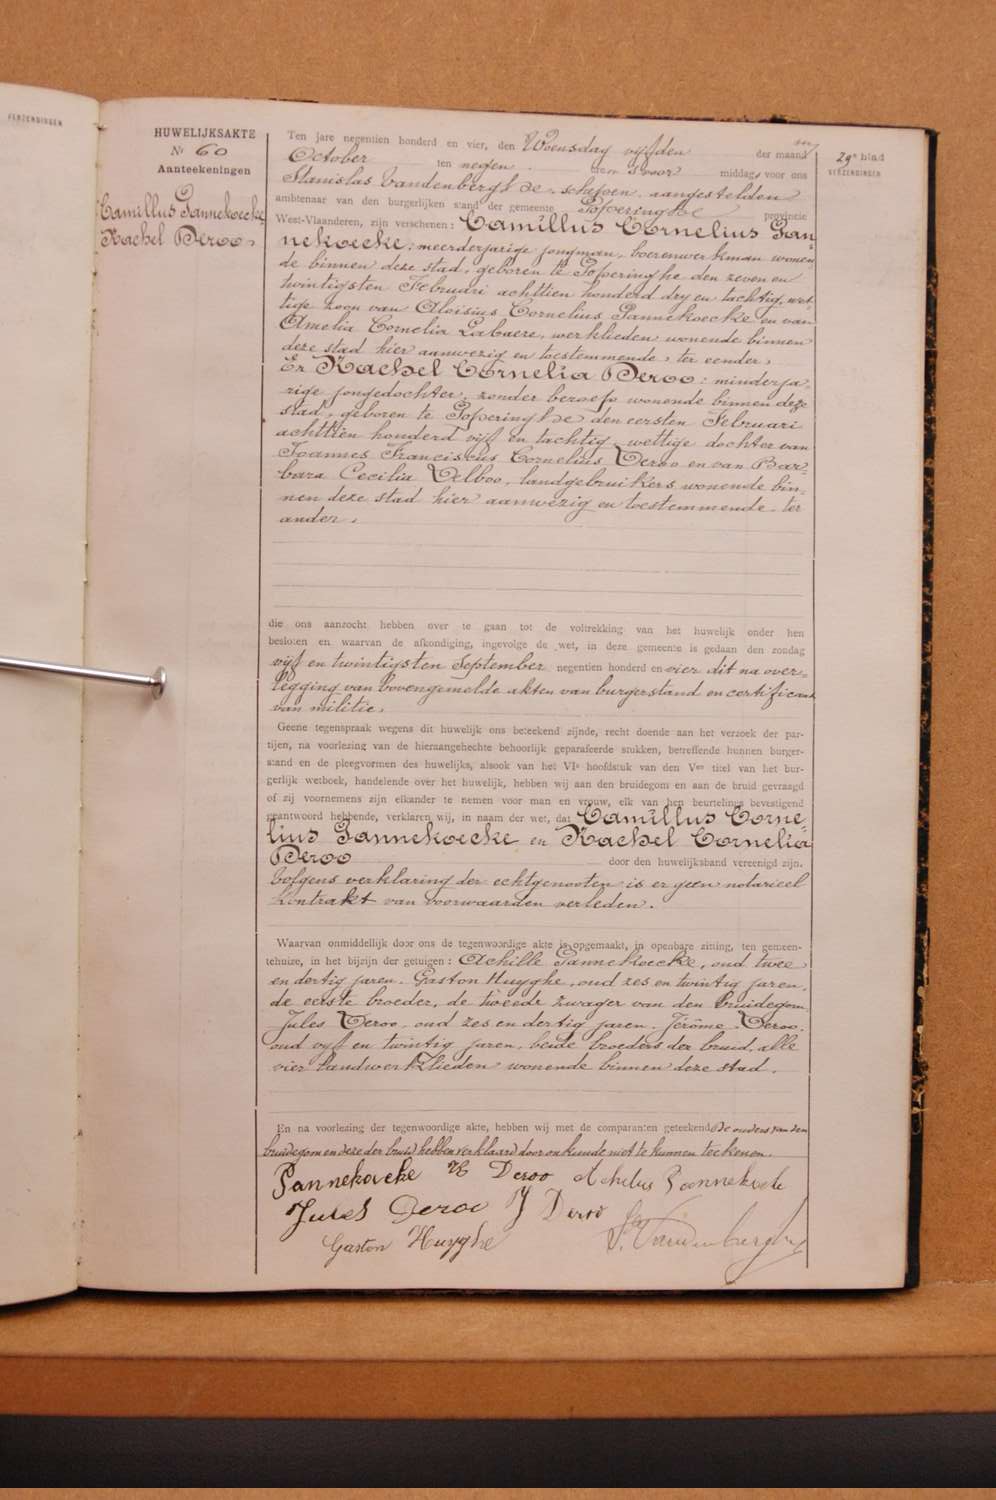 VERZENDINGEN
HUWELIJKSAKTE
Nr 60
Aanteekeningen
Camillus Pannekoecke
Rachel Deroo.
29e blad
VERZENDINGEN
Ten jare negentien honderd en vier, den Woensdag vijfden der maand
October ten negen uren 's voor middag, voor ons
Stanislas Vandenberghe, schepen, aangestelden
ambtenaar van den burgerlijken stand der gemeente Poperinghe provincie
West-Vlaanderen, zijn verschenen: Camillus Cornelius Pan-
nekoecke, meerderjarige jongman, boerenwerkman wonen-
de binnen deze stad, geboren te Poperinghe den zeven en
twintigsten Februari achttien honderd dry en tachtig, wet-
tige zoon van Aloisius Cornelius Pannekoecke en van
Amelia Cornelia Labaere, werklieden wonende binnen
deze stad hier aanwezig en toestemmende, ter eender,
En Rachel Cornelia Deroo: minderja-
rige jongedochter, zonder beroep wonende binnen deze
stad, geboren te Poperinghe den eersten Februari
achttien honderd vijf en tachtig, wettige dochter van
Joannes Franciscus Cornelius Deroo en van Bar-
bara Cecilia Delboo, landgebruikers wonende bin-
nen deze stad hier aanwezig en toestemmende, ter
ander.
die ons aanzocht hebben over te gaan tot de voltrekking van het huwelijk onder hen
besloten en waarvan de afkondiging, ingevolge de wet, in deze gemeente is gedaan den zondag
vijf en twintigsten September negentien honderd en vier dit na over-
legging van bovengemelde akten van burgerstand en certificaat
van militie.
Geene tegenspraak wegens dit huwelijk ons beteekend zijnde, recht doende aan het verzoek der par-
tijen, na voorlezing van de hieraangehechte behoorlijk geparafeerde stukken, betreffende hunnen burger-
stand en de pleegvormen des huwelijks, alsook van het VIe hoofdstuk van den Ven titel van het bur-
gerlijk wetboek, handelende over het huwelijk, hebben wij aan den bruidegom en aan de bruid gevraagd
of zij voornemens zijn elkander te nemen voor man en vrouw, elk van hen beurtelings bevestigend
geantwoord hebbende, verklaren wij, in naam der wet, dat Camillus Corne-
lius Pannekoecke en Rachel Cornelia
Deroo door den huwelijksband vereenigd zijn.
Volgens verklaring der echtgenooten is er geen notarieel
kontrakt van voorwaarden verleden.
Waarvan onmiddellijk door ons de tegenwoordige akte is opgemaakt, in openbare zitting, ten gemeen-
tehuize, in het bijzijn der getuigen: Achille Pannekoecke, oud twee
en dertig jaren. Gaston Huyghe, oud zes en twintig jaren,
de eerste broeder, de tweede zwager van den bruidegom
Jules Deroo, oud zes en dertig jaren. Jerôme Deroo,
oud vijf en twintig jaren, beide broeders der bruid, alle
vier landwerklieden wonende binnen deze stad.
En na voorlezing der tegenwoordige akte, hebben wij met de comparanten geteekend De ouders van den
bruidegom en deze der bruid hebben verklaard door onkunde niet te kunnen teekenen.
Pannekoecke R Deroo Achilus Pannekoecke
Jules Deroo J Deroo
Gaston Huyghe S. Vandenberghe